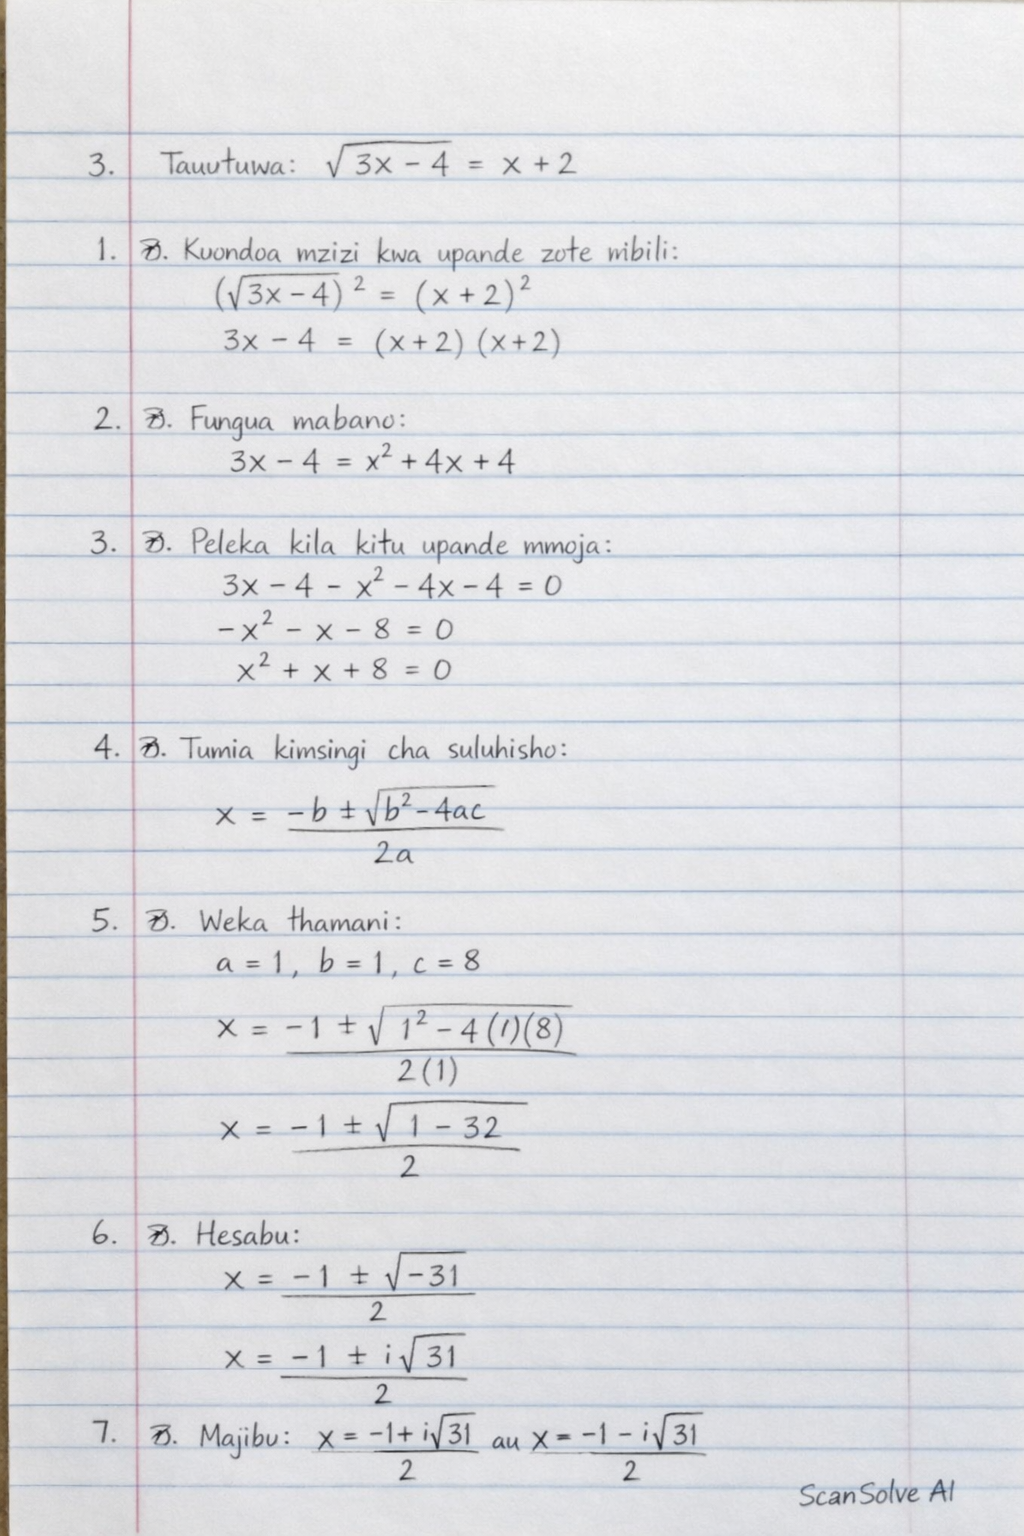 3. Tauutuwa: √(3x - 4) = x + 2
1. Kuondoa mzizi kwa upande zote mibili:
(√(3x - 4))² = (x + 2)²
3x - 4 = (x+2) (x+2)
2. Fungua mabano:
3x - 4 = x² + 4x + 4
3. Peleka kila kitu upande mmoja:
3x - 4 - x² - 4x - 4 = 0
-x² - x - 8 = 0
x² + x + 8 = 0
4. Tumia kimsingi cha suluhisho:
x = (-b ± √(b² - 4ac)) / 2a
5. Weka thamani:
a = 1, b = 1, c = 8
x = (-1 ± √(1² - 4(1)(8))) / 2(1)
x = (-1 ± √(1 - 32)) / 2
6. Hesabu:
x = (-1 ± √(-31)) / 2
x = (-1 ± i√31) / 2
7. Majibu: x = (-1 + i√31) / 2 au x = (-1 - i√31) / 2
ScanSolve AI